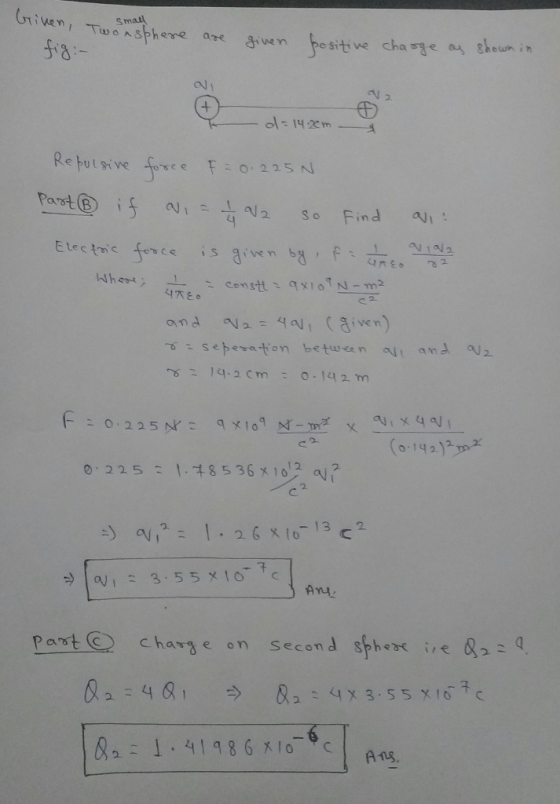 Given, Two small sphere are given positive charge as shown in
fig:-
q1 q2
+ +
d=14.2cm
Repulsive force F = 0.225 N
Part (B) if q1 = 1/4 q2 so Find q1 :
Electric force is given by, F = 1/4πε0 q1q2/r2
Where; 1/4πε0 = constt = 9x10^9 N-m²/c²
and q2 = 4q1 (given)
r = seperation between q1 and q2
r = 14.2cm = 0.142 m
F = 0.225 N = 9x10^9 N-m²/c² x q1 x 4q1/(0.142)²m²
0.225 = 1.78536x10^12/c² q1²
=) q1² = 1.26x10^-13 c²
=> q1 = 3.55x10^-7 c Ans.
Part (C) Charge on second sphere i,e Q2 = ?
Q2 = 4Q1 => Q2 = 4x3.55x10^-7 c
Q2 = 1.41986x10^-6 c Ans.